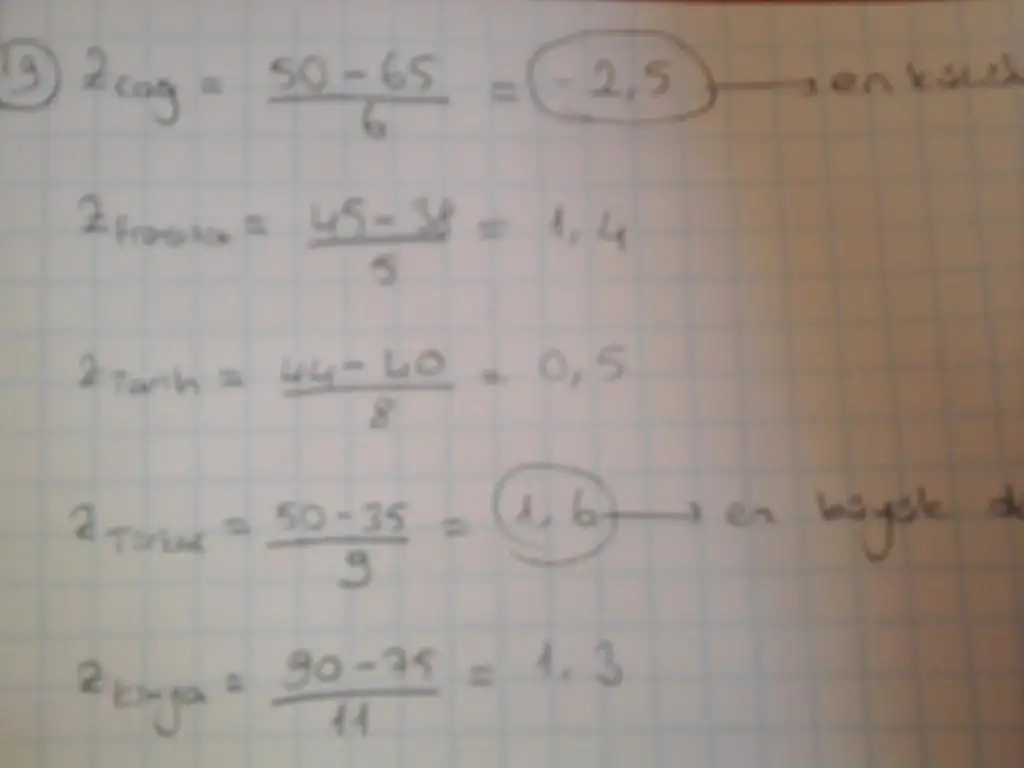 19) Z coğ = 50 - 65 / 6 = -2,5 → en küçük
Z = 45 - 38 / 5 = 1,4
Z Tarih = 44 - 40 / 8 = 0,5
Z Türkçe = 50 - 35 / 9 = 1,6 → en büyük de
Z kimya = 90 - 75 / 11 = 1,3